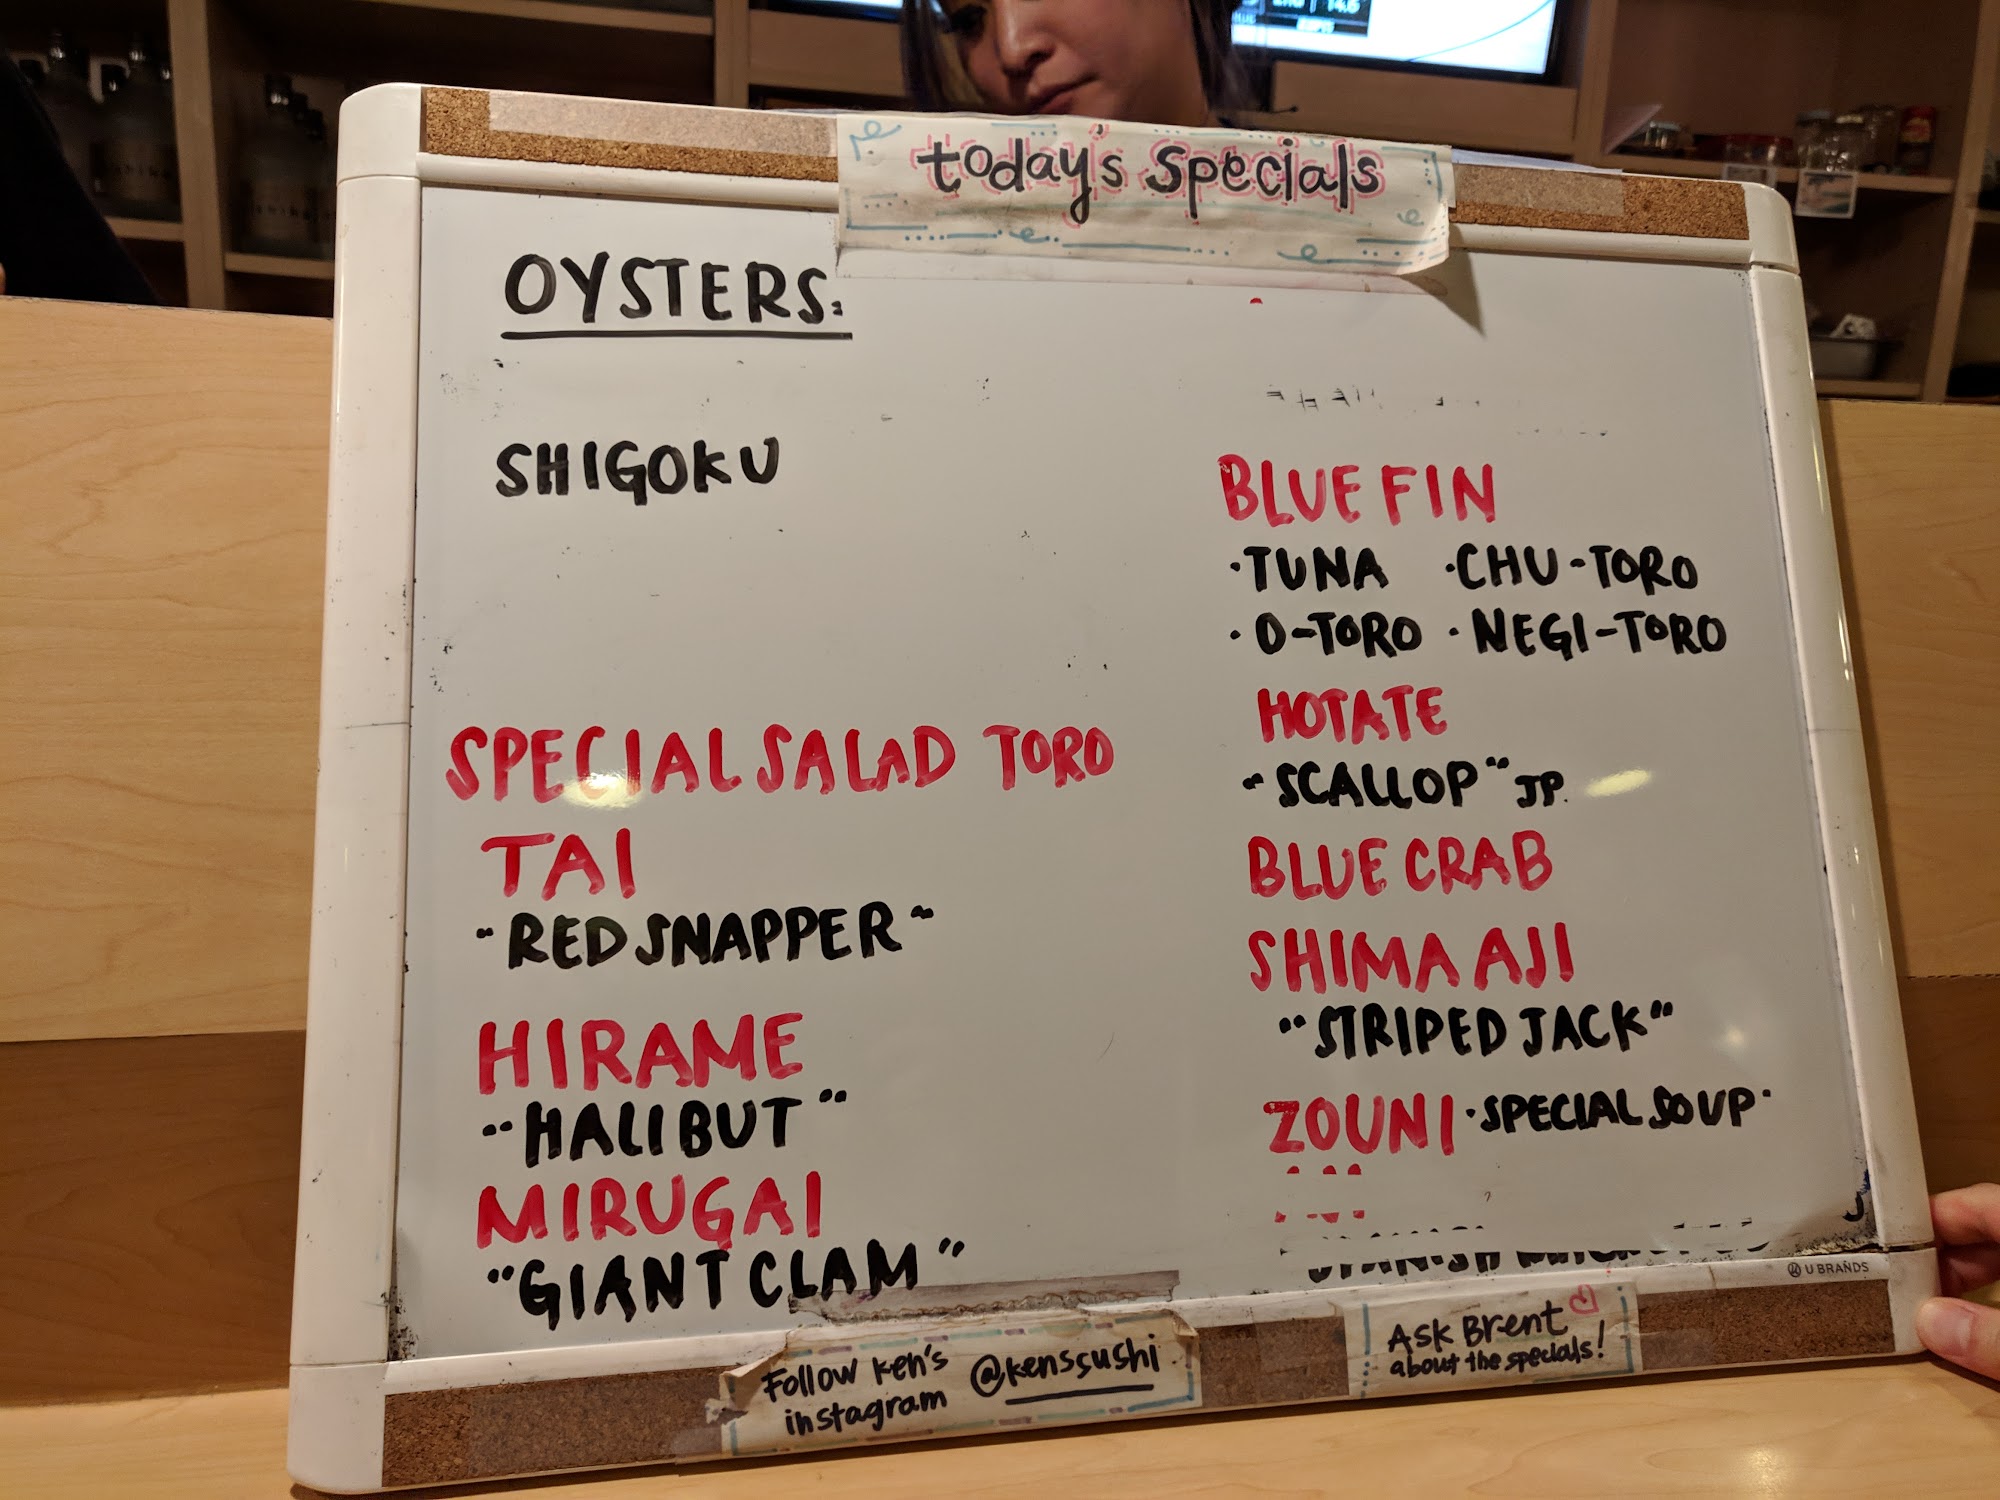 today's specials
OYSTERS:
SHIGOKU
SPECIAL SALAD TORO
TAI
"RED SNAPPER"
HIRAME
"HALIBUT"
MIRUGAI
"GIANT CLAM"
BLUE FIN
·TUNA ·CHU-TORO
·O-TORO ·NEGI-TORO
HOTATE
"SCALLOP" JP.
BLUE CRAB
SHIMA AJI
"STRIPED JACK"
ZOUNI ·SPECIAL SOUP·
U BRANDS
Follow Ken's
instagram @kenssushi
Ask Brent
about the specials!